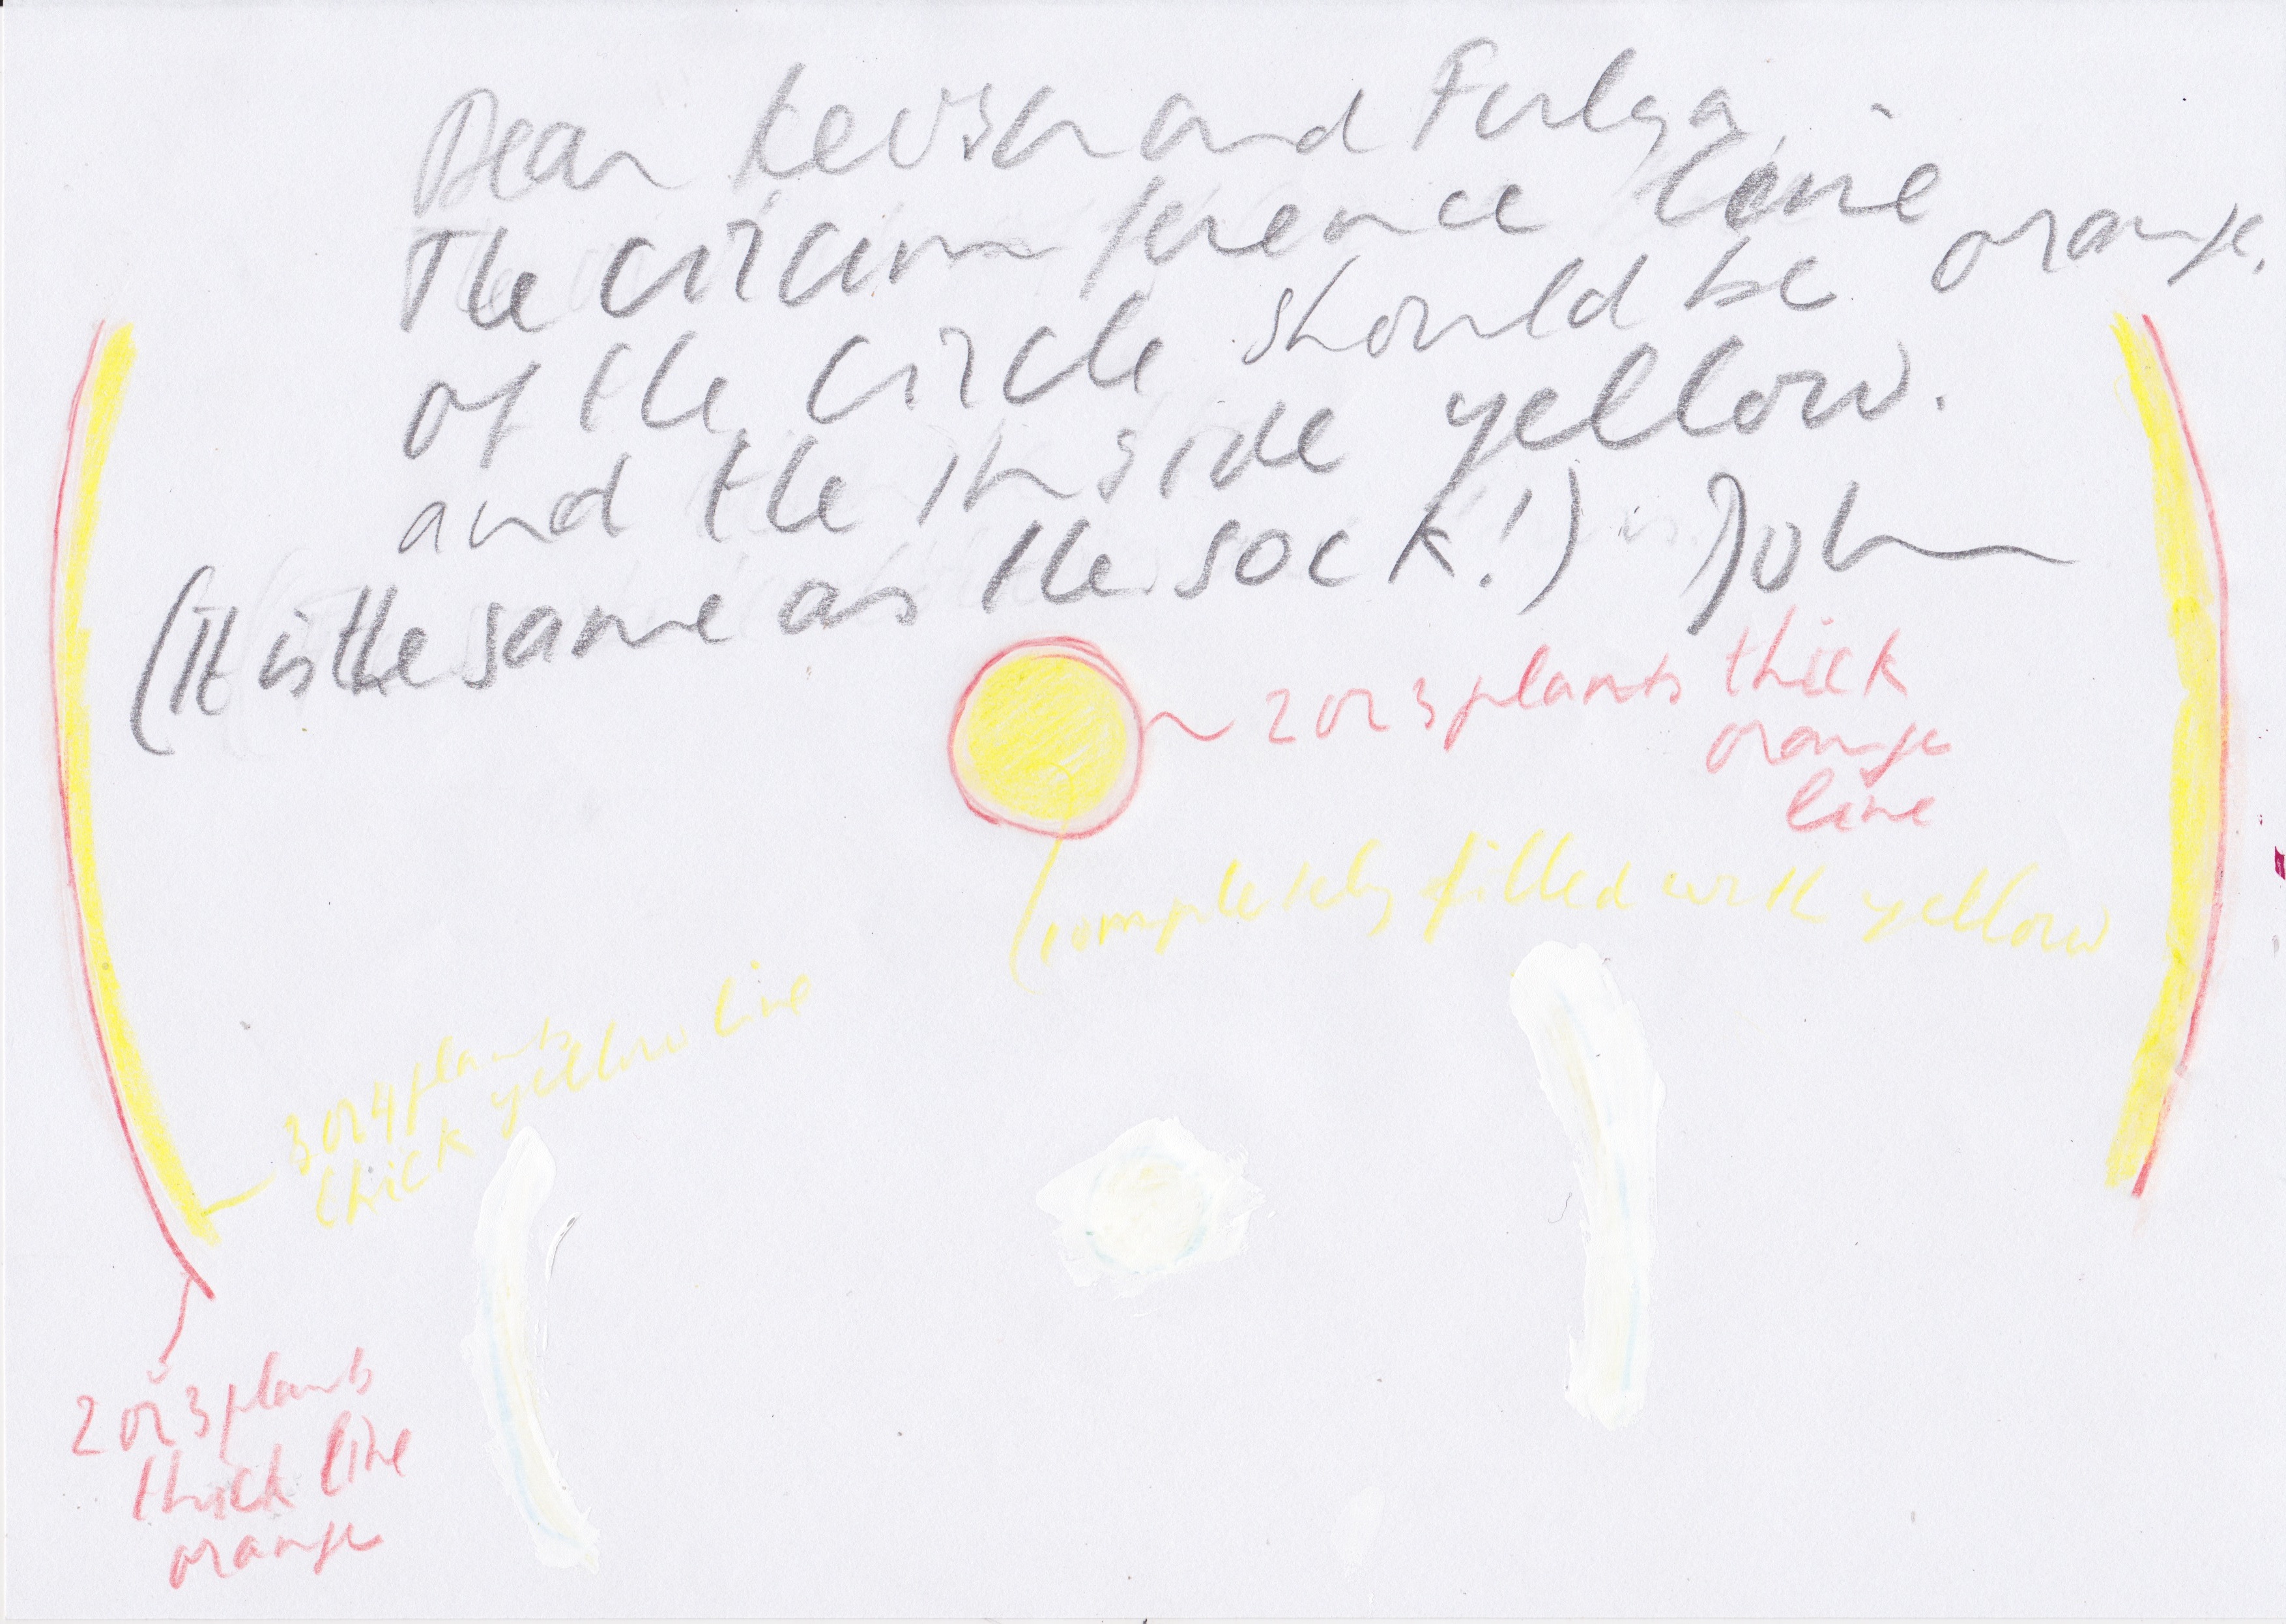 Dear and
The circumference line
of the circle should be orange.
and the inside yellow.
(It is the same as the sock!) John
2 or 3 plants thick
orange
line
completely filled with yellow
3 or 4 plants
thick yellow line
2 or 3 plants
thick line
orange